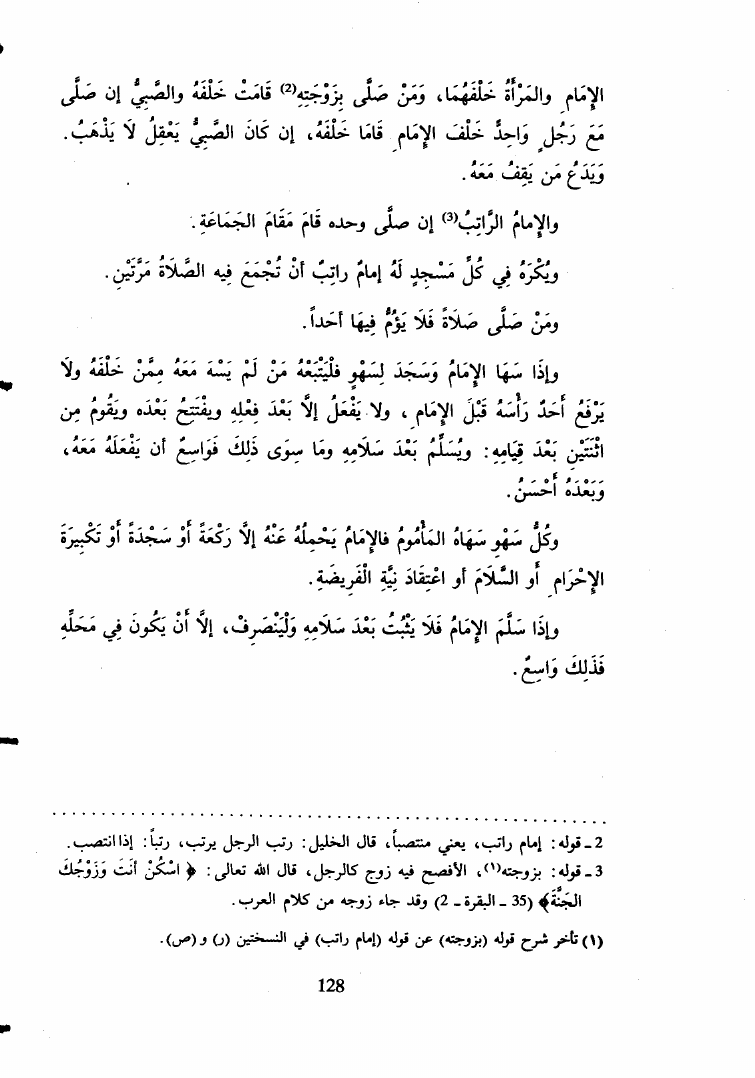 الإِمَامِ والمَرْأَةُ خَلْفَهُمَا، وَمَنْ صَلَّى بِزَوْجَتِهِ(2) قَامَتْ خَلْفَهُ والصَّبِيُّ إن صَلَّى
مَعَ رَجُلٍ وَاحِدٍ خَلْفَ الإِمَامِ قَامَا خَلْفَهُ، إن كَانَ الصَّبِيُّ يَعْقِلُ لَا يَذْهَبُ.
وَيَدَعُ مَن يَقِفُ مَعَهُ.
والإِمامُ الرَّاتِبُ(3) إن صلَّى وحده قَامَ مَقَامَ الجَمَاعَةِ.
ويُكْرَهُ فِي كُلِّ مَسْجِدٍ لَهُ إمامٌ راتِبٌ أنْ تُجْمَعَ فِيه الصَّلاَةُ مَرَّتَيْنِ.
ومَنْ صَلَّى صَلاَةً فَلَا يَؤُمُّ فِيهَا أحَداً.
وإذَا سَهَا الإِمَامُ وَسَجَدَ لِسَهْوِهِ فلْيَتْبَعْهُ مَنْ لَمْ يَسْهُ مَعَهُ مِمَّنْ خَلْفَهُ ولَا
يَرْفَعُ أَحَدٌ رَأْسَهُ قَبْلَ الإِمَامِ، ولا يَفْعَلُ إلَّا بَعْدَ فِعْلِهِ ويفْتَتِحُ بَعْدَه ويَقُومُ مِن
اثْنَتَيْنِ بَعْدَ قِيَامِهِ: ويُسَلِّمُ بَعْدَ سَلَامِهِ ومَا سِوَى ذَلِكَ فَوَاسِعٌ أن يَفْعَلَهُ مَعَهُ،
وَبَعْدَهُ أَحْسَنُ.
وكُلُّ سَهْوٍ سَهَاهُ المَأْمُومُ فالإِمَامُ يَحْمِلُهُ عَنْهُ إلَّا رَكْعَةً أَوْ سَجْدَةً أَوْ تَكْبِيرَةَ
الإِحْرَامِ أَو السَّلَامَ أو اعْتِقَادَ نِيَّةِ الْفَرِيضَةِ.
وإذَا سَلَّمَ الإِمَامُ فَلَا يَثْبُتُ بَعْدَ سَلَامِهِ وَلْيَنْصَرِفْ، إلَّا أَنْ يَكُونَ فِي مَحَلِّهِ
فَذَلِكَ وَاسِعٌ.
2 ـ قوله: إمام راتب، يعني منتصباً، قال الخليل: رتب الرجل يرتب، رتباً: إذا انتصب.
3 ـ قوله: بزوجته(١)، الأفصح فيه زوج كالرجل، قال الله تعالى: ﴿اسْكُنْ أَنتَ وَزَوْجُكَ
الجَنَّةَ﴾ (35 ـ البقرة ـ 2) وقد جاء زوجه من كلام العرب.
(١) تأخر شرح قوله (بزوجته) عن قوله (إمام راتب) في النسختين (ر) و(ص).
128